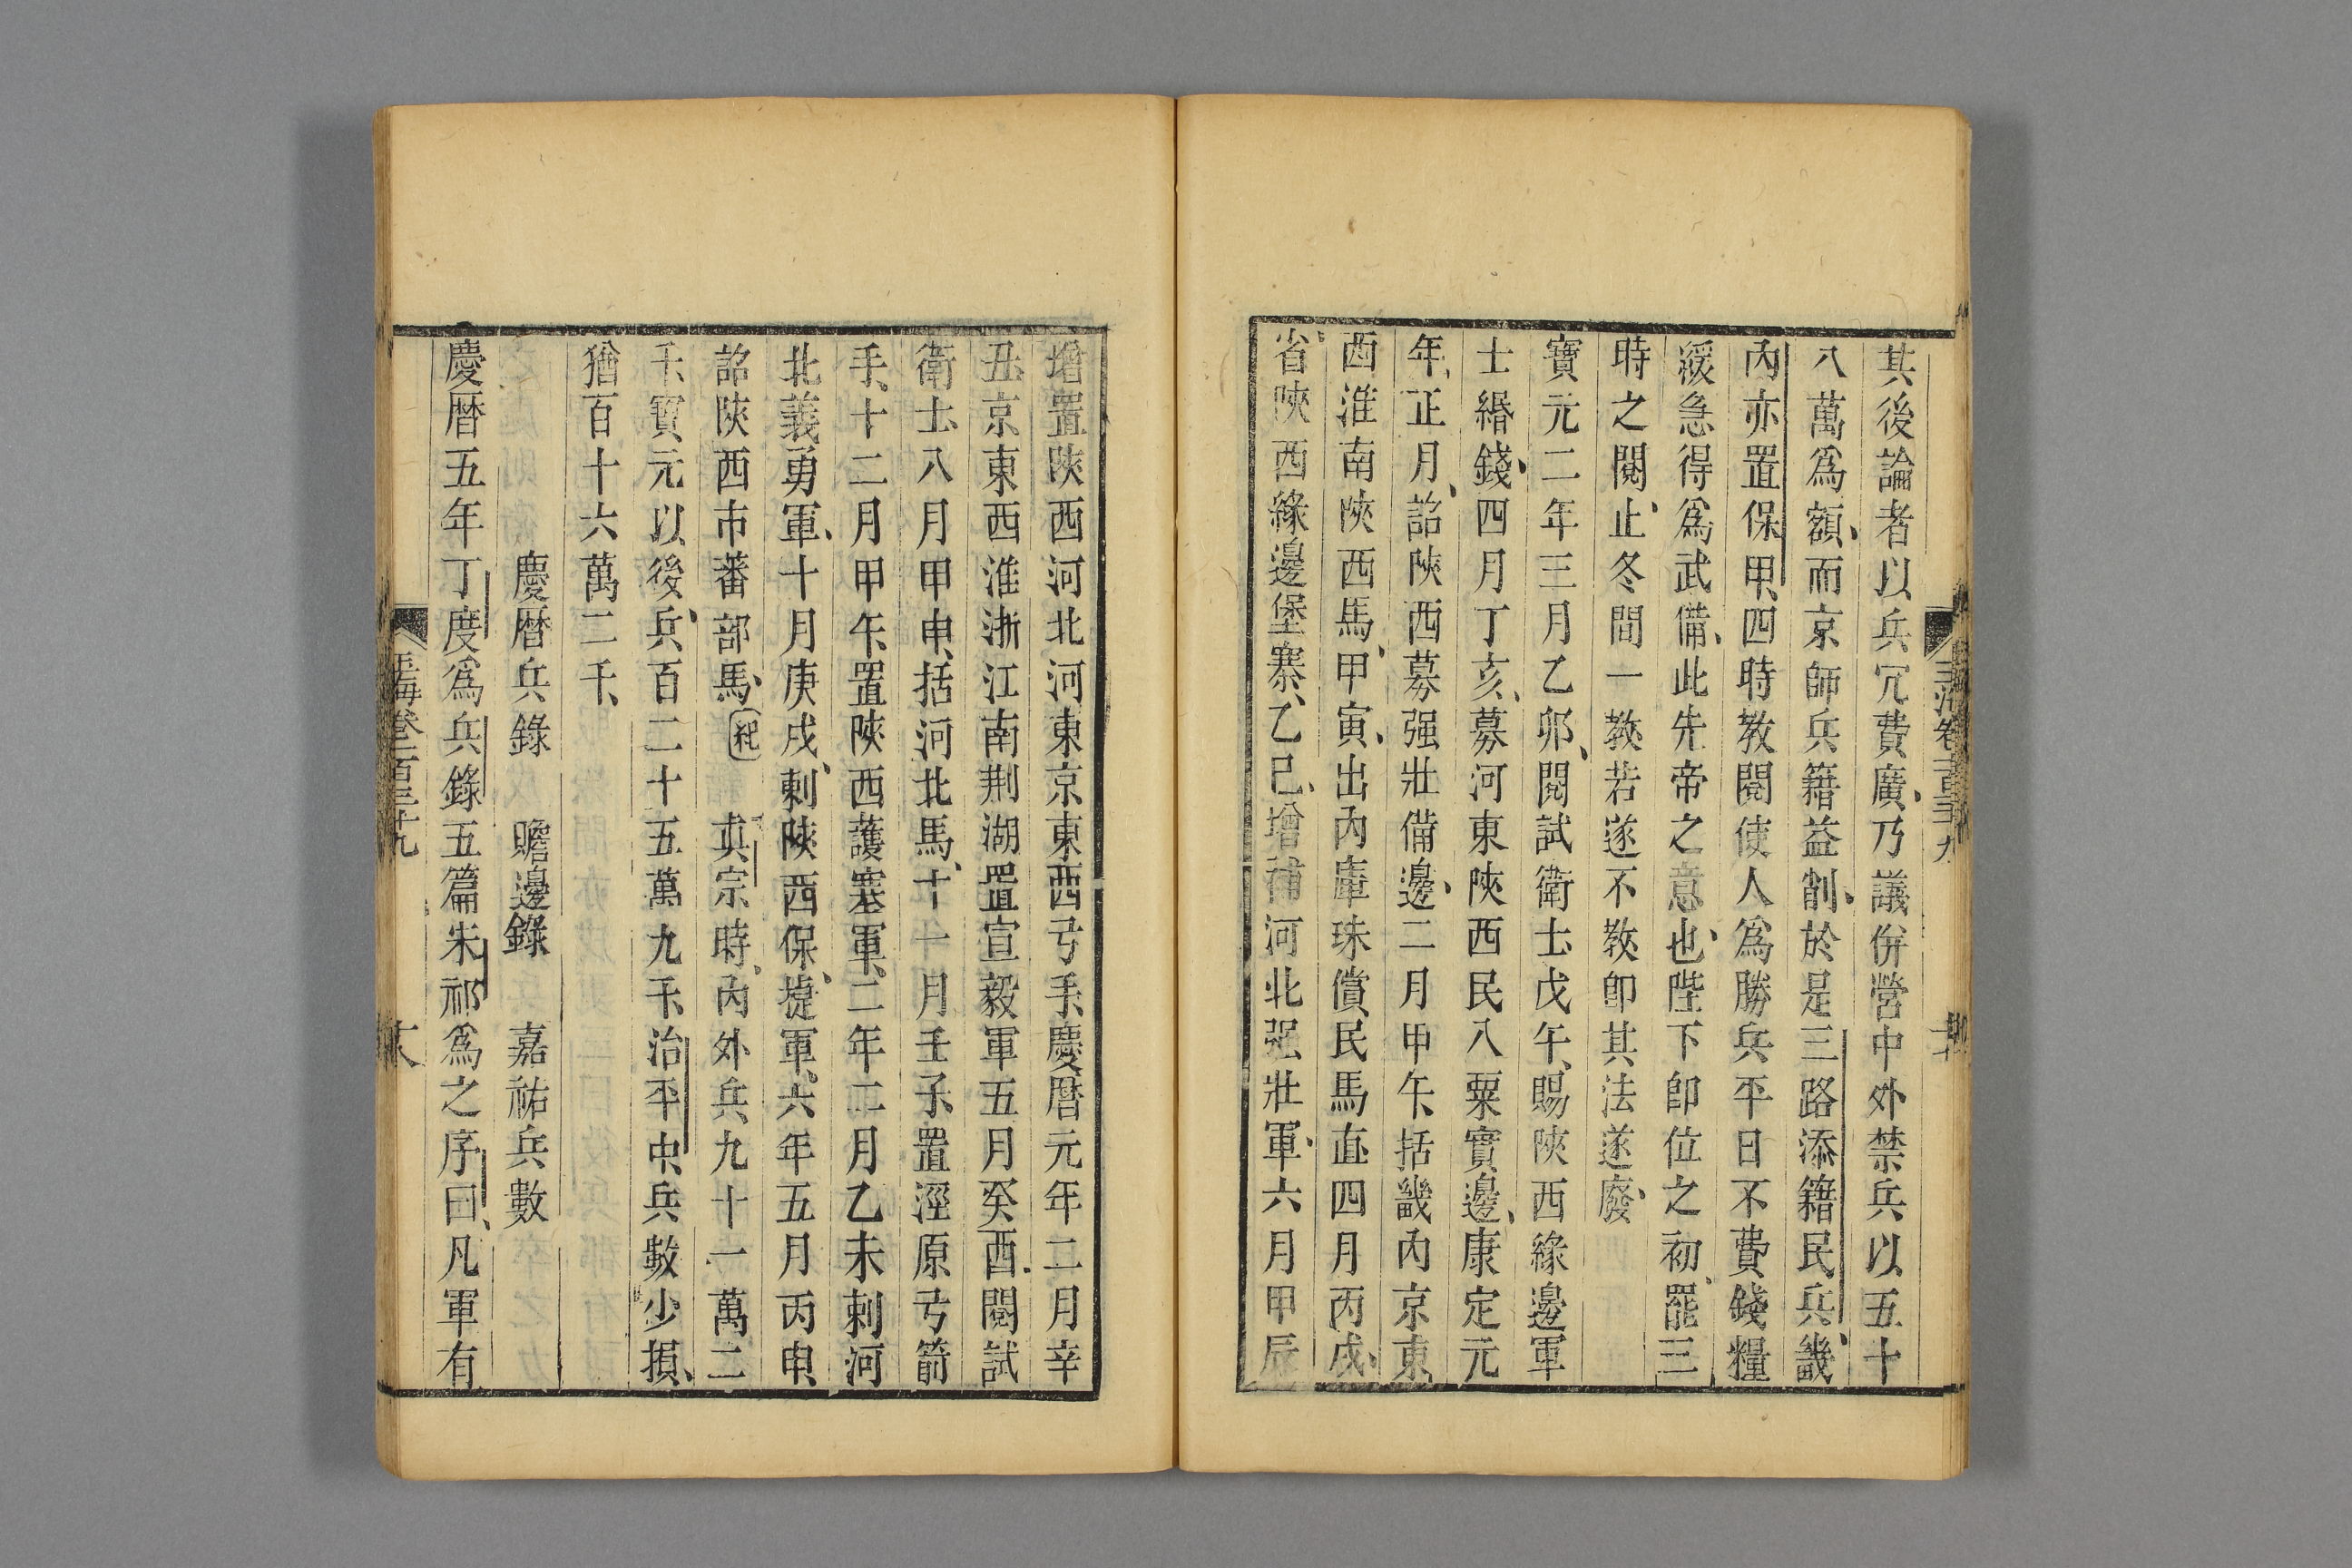 其後論者以兵冗費廣乃議併營中外禁兵以五十
八萬爲額而京師兵籍益削於是三路添籍民兵畿
內亦置保甲四時教閱使人爲勝兵平日不費錢糧
緩急得爲武備此先帝之意也陛下卽位之初罷三
時之閱止冬間一教若遂不教卽其法遂廢
寶元二年三月乙卯閱試衛士戊午賜陝西緣邊軍
士緡錢四月丁亥募河東陝西民入粟實邊康定元
年正月詔陝西募强壯備邊二月甲午括畿內京東
西淮南陝西馬甲寅出內庫珠償民馬直四月丙戌
省陝西緣邊堡寨乙巳增補河北强壯軍六月甲辰
增置陝西河北河東京東西弓手慶曆元年二月辛
丑京東西淮浙江南荆湖置宣毅軍五月癸酉閱試
衛士八月甲申括河北馬十一月壬子置涇原弓箭
手十二月甲午置陝西護塞軍二年二月乙未刺河
北義勇軍十月庚戌刺陝西保捷軍六年五月丙申
詔陝西市蕃部馬紀 真宗時內外兵九十一萬二
千寶元以後兵百二十五萬九千治平中兵數少損
猶百十六萬二千
慶曆兵錄 贍邊錄 嘉祐兵數
慶曆五年丁度爲兵錄五篇朱祁爲之序曰凡軍有
玉海卷一百三十九